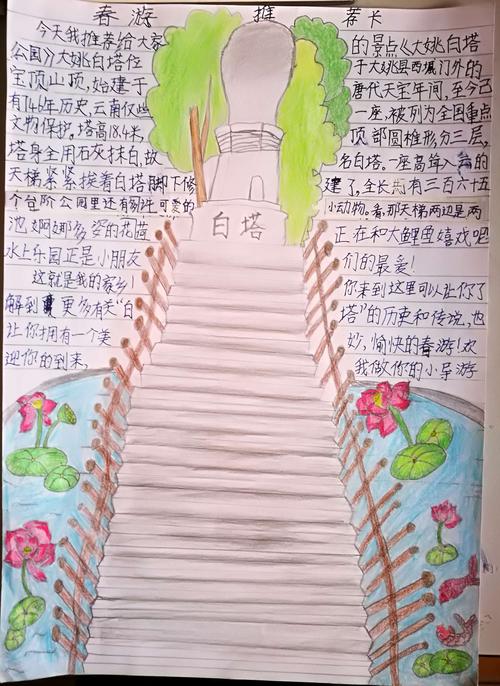 春游推荐卡
今天我推荐给大家的景点《大姚白塔
公园》大姚白塔位于大姚县西城门外的
宝顶山顶,始建于唐代天宝年间,至今已
有746年历史,云南仅此一座,被列为全国重点
文物保护。塔高18.4米,顶部圆椎形,分三层,
塔身全用石灰抹白,故名白塔。一座高耸入云的
天梯紧紧挨着白塔脚下修建了,全长共有三百六十五
个台阶公园里还有可爱的小动物。看,那天梯两边是两
池婀娜多姿的花蓝正在和大鲤鱼嬉戏呢
水上乐园正是小朋友们的最爱!
这就是我的家乡!你来到这里可以让你了
解到更多有关“白塔”的历史和传说,也
让你拥有一个美妙,愉快的春游!欢
迎你的到来,我做你的小导游
白塔